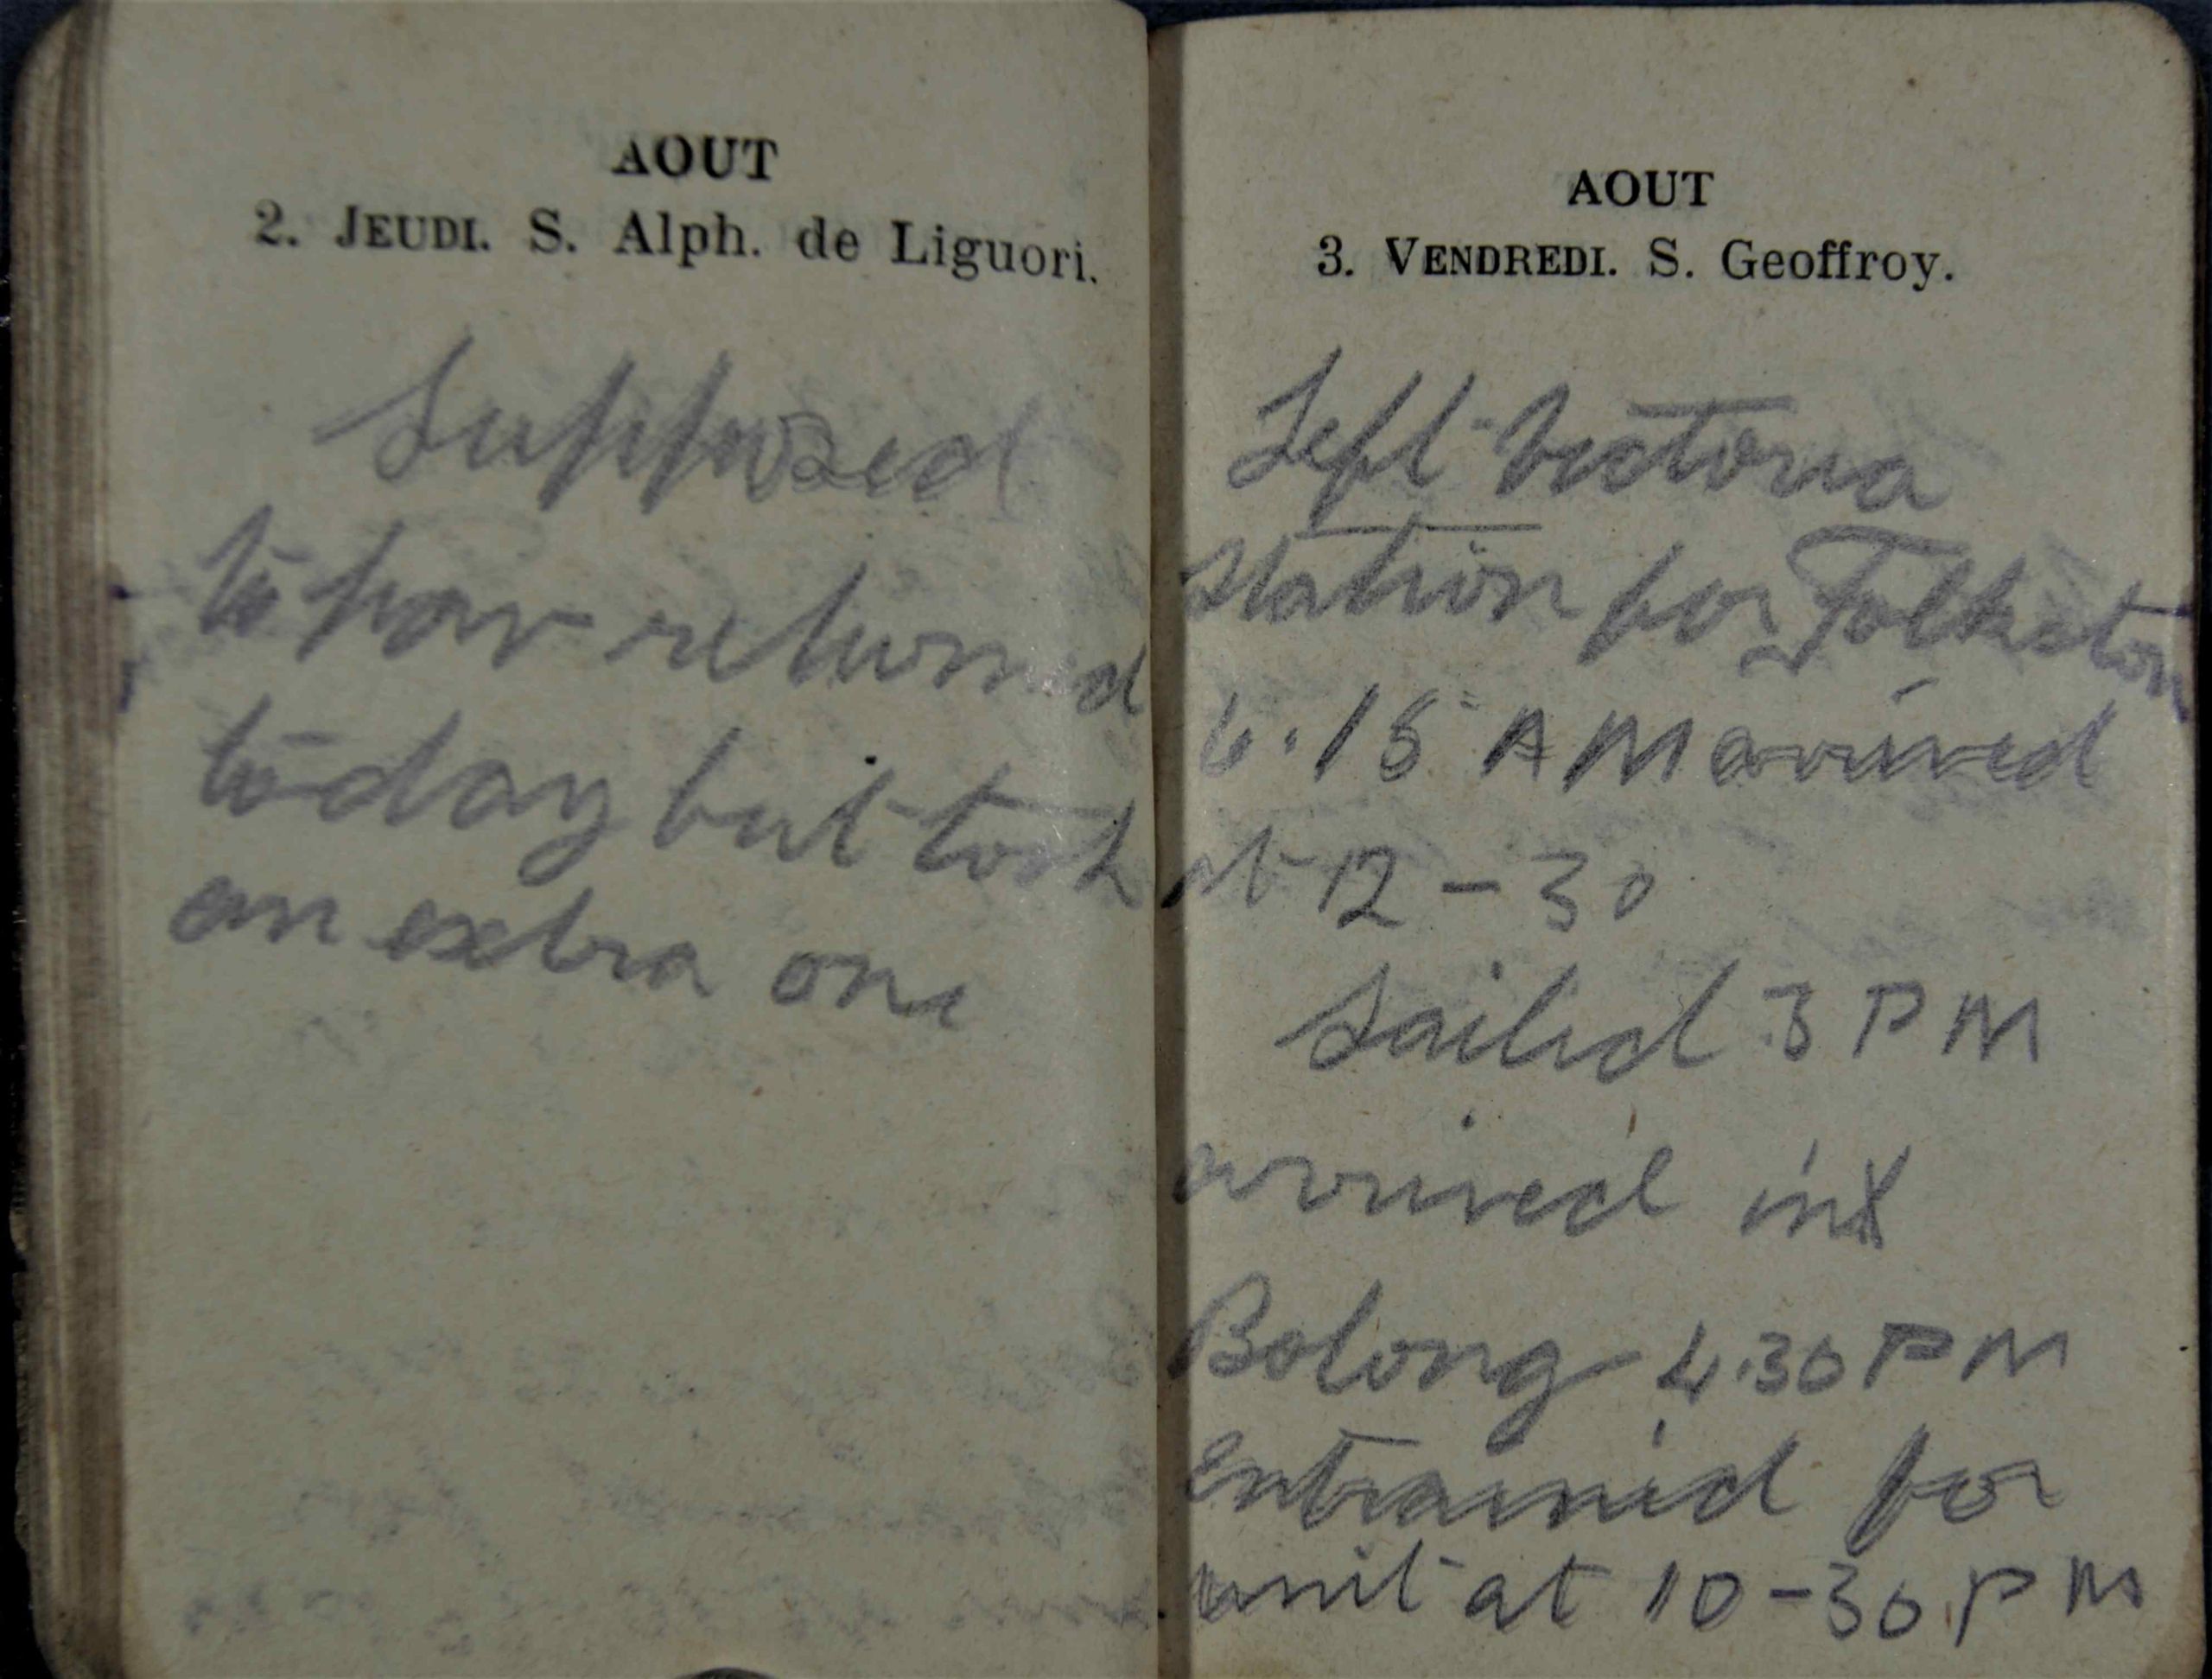 AOUT
2. JEUDI. S. Alph. de Liguori.
Supposed
to hav returned
today but took
an extra one
AOUT
3. VENDREDI. S. Geoffroy.
Left Victoria
station for Folkston
6.15 AM arrived
at 12-30
Sailed 3 PM
arrived in
Bolong 4.30 PM
Entrained for
unit at 10-30 PM